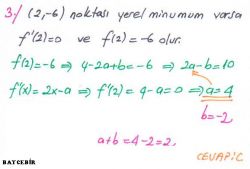 3-/ (2,-6) noktası yerel minumum varsa
f'(2)=0 ve f(2)=-6 olur.
f(2)=-6 ⇒ 4-2a+b=-6 ⇒ 2a-b=10
f'(x)=2x-a ⇒ f'(2)=4-a=0 ⇒ a=4
b=-2
a+b=4-2=2.
CEVAP: C
BATCEBİR